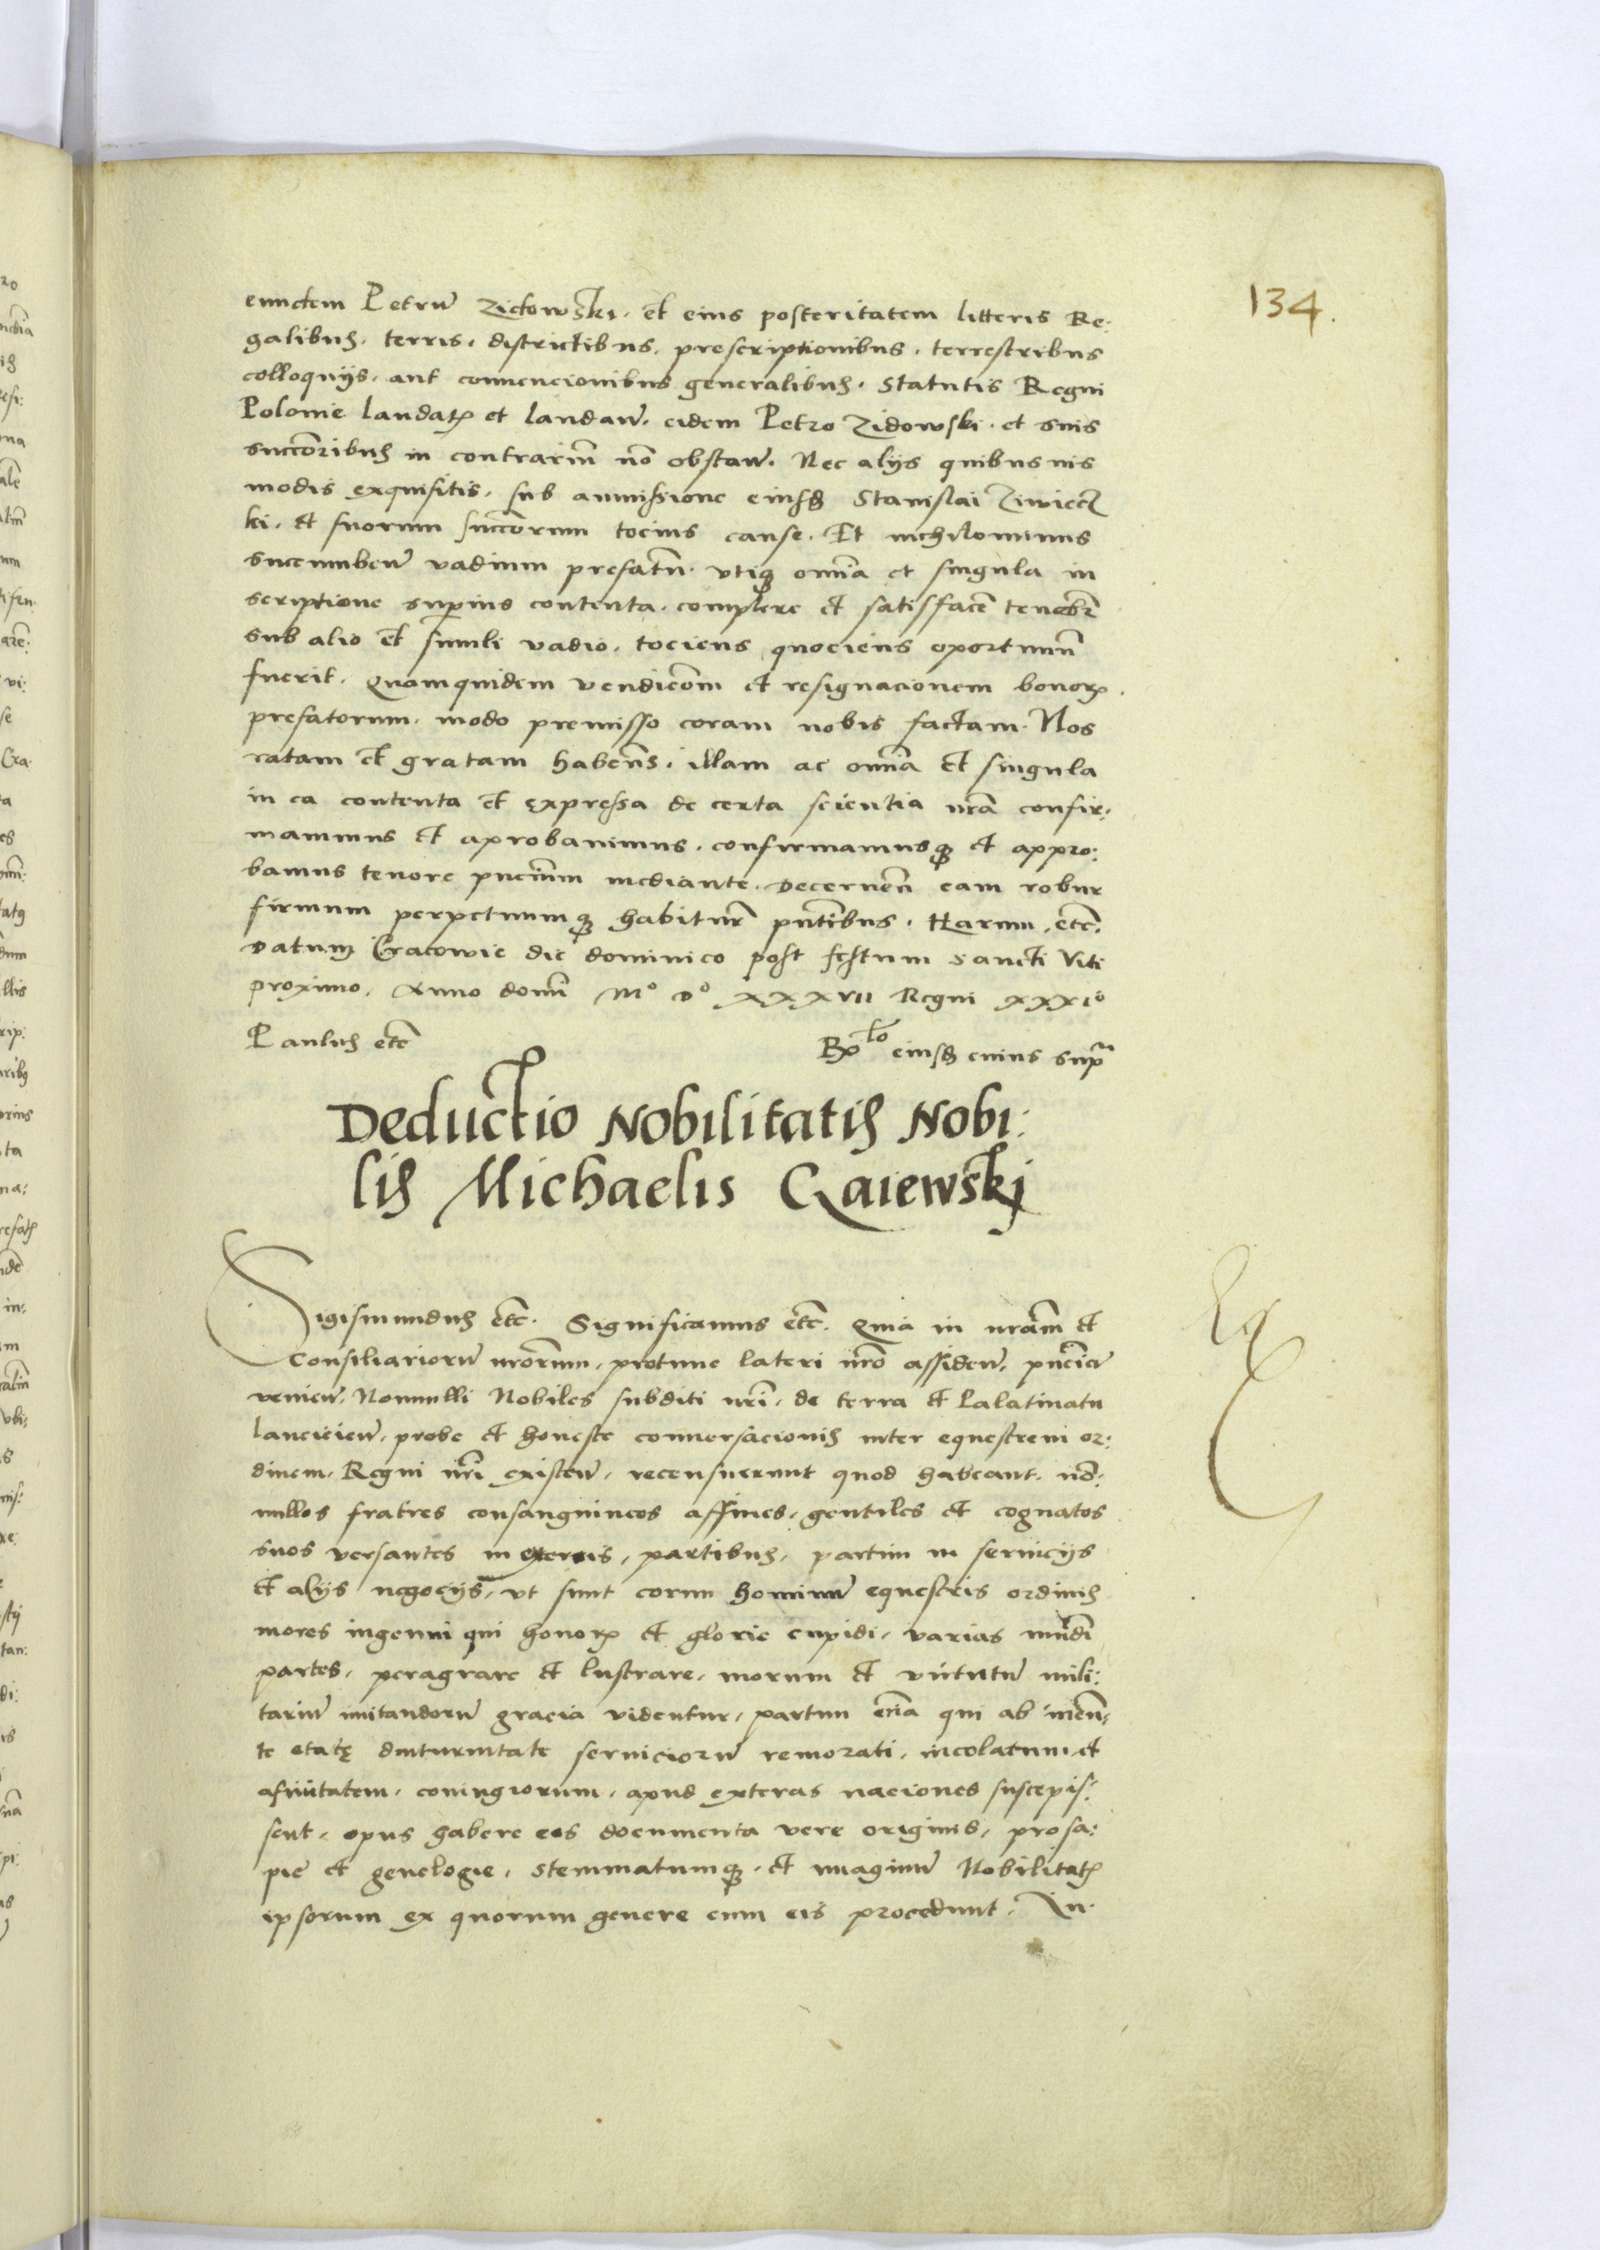 134.
eundem Petrũ Zidowski. et eius posteritatem litteris Re:
galibus. terris. districtibus. prescriptionibus. terrestribus
colloquijs. aut convencionibus generalibus. Statutis Regni
Polonie laudatꝝ et laudañ. eidem Petro Zidowski. et suis
succoribus in contrariũ nõ obstañ. Nec alijs quibusvis
modis exquisitis. sub ammissione eiusd Stanislai
ki. et suorum succorum tocius cause. Et nichilominus
succumbeñ vadium prefatũ. utiqꝫ omia et singula in
scriptione superius contenta. complere et satisfacẽ tenebr
sub alio et simili vadio. tociens quociens oportunũ
fuerit. Quamquidem vendicom et resignacionem bonorꝝ
prefatorum. modo premisso coram nobis factam. Nos
ratam et gratam habeñs. illam ac omia et singula
in ea contenta et expressa de certa scientia nra confir:
mamus et aprobavimus. confirmamusqꝫ et appro:
bamus tenore pñcium mediante. decerneñ eam robur
firmum perpetuumqꝫ habitur pñtibus. Harum. etc.
Datum Cracowie die dominico post festum sancti Viti
proximo. Anno domi Mo do xxxvii Regni xxxio
Paulus etc
Rolo eiusd cuius supra
Deductio Nobilitatis Nobi:
lis Michaelis Gaiewskj
Sigismundus etc. Significamus etc. Quia in nram et
Consiliariorũ nrorum. protunc lateri nro assideñ. pñcia
venieñ. Nonnulli Nobiles subditi nri. de terra et Palatinatu
lancicieñ. probe et honeste conversacionis inter equestrem or:
dinem. Regni nri existeñ. recensuerunt quod habeant. nõ:
nullos fratres consanguineos affines. gentiles et cognatos
suos versantes in exteris. partibus. partim in servicijs
et alijs negocijs. ut sunt eorum hominũ equestris ordinis
mores ingenui qui honorꝝ et glorie cupidi. varias mũdi
partes. peragrare et lustrare. morum et virtutũ mili:
tariũ imitandorũ gracia videntur. partim etia qui ab ineũ:
te etate diuturnitate serviciorũ remorati. incolatum et
afinitatem. coniugiorum. apud exteras naciones suscepis:
sent. opus habere eos documenta vere originis. prosa:
pie et genelogie. stemmatumqꝫ. et imaginũ Nobilitatꝝ
ipsorum ex quorum genere cum eis procedunt. In.